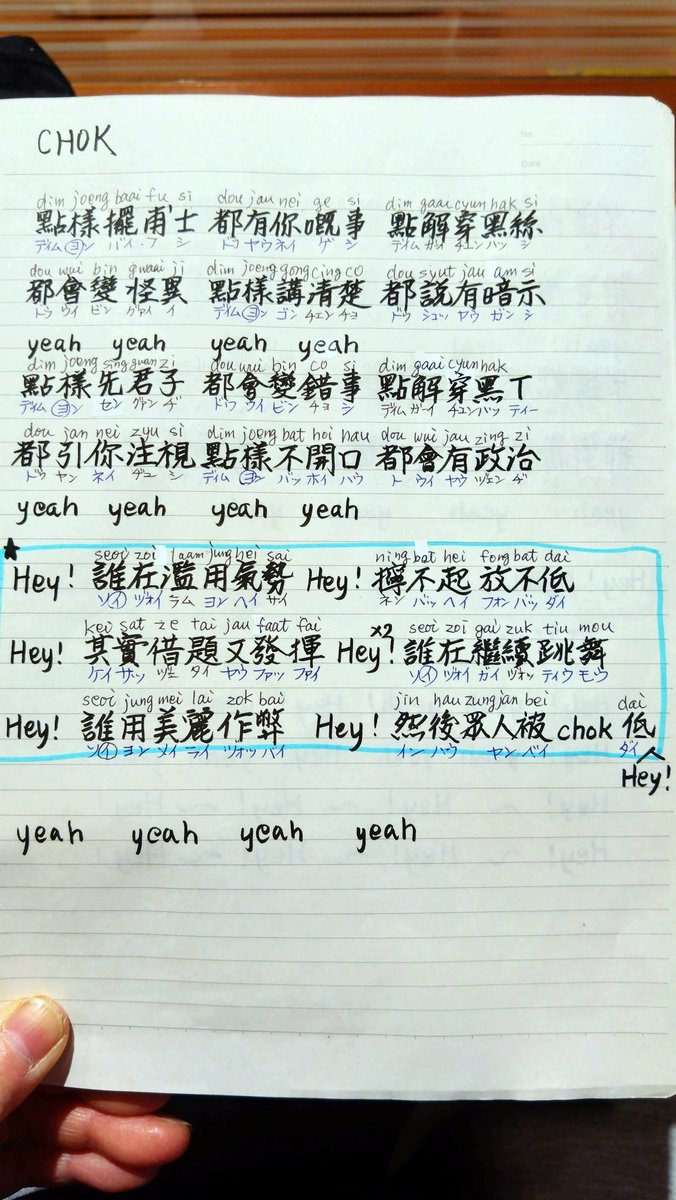 No.
Date
CHOK
dim joeng baai fu si dou jau nei ge si dim gaai cyun hak si
點樣擺甫士 都有你嘅事 點解穿黑絲
ディム ヨン バイ フ シ ドウ ヤウ ネイ ゲ シ ディム ガイ チュン ハッ シ
dou wui bin gwaai ji dim joeng gong cing co dou syut jau am si
都會變怪異 點樣講清楚 都說有暗示
ドウ ウイ ビン グァイ イ ディム ヨン ゴン チェン チョ ドウ シュッ ヤウ ガン シ
yeah yeah yeah yeah
dim joeng sing guan zi dou wui bin co si dim gaai cyun hak
點樣先君子 都會變錯事 點解穿黑T
ディム ヨン セン グァン ヂ ドウ ウイ ビン チョ シ ディム ガーイ チュン ハッ ティー
dou jan nei zyu si dim joeng bat hoi hau dou wui jau zing zi
都引你注視 點樣不開口 都會有政治
ドウ ヤン ネイ ヂュ シ ディム ヨン バッ ホイ ハウ ト ウイ ヤウ ヅェン ヂ
yeah yeah yeah yeah
★
seoi zoi laam jung hei sai ning bat hei fong bat dai
Hey! 誰在濫用氣勢 Hey! 擰不起 放不低
ソイ ヅォイ ラム ヨン ヘイ サイ ネン バッ ヘイ フォン バッ ダイ
kei sat ze tai jau faat fai x2 seoi zoi gai zuk tiu mou
Hey! 其實借題又發揮 Hey! 誰在繼續跳舞
ケイ サッ ヅェ タイ ヤウ ファッ ファイ ソイ ヅォイ ガイ ヅォッ ティウ モウ
seoi jung mei lai zok bai jin hau zung jan bei dai
Hey! 誰用美麗作弊 Hey! 然後眾人被chok低
ソイ ヨン メイ ライ ヅォッ バイ イン ハウ ヤン ベイ ダイ
Hey!
yeah yeah yeah yeah